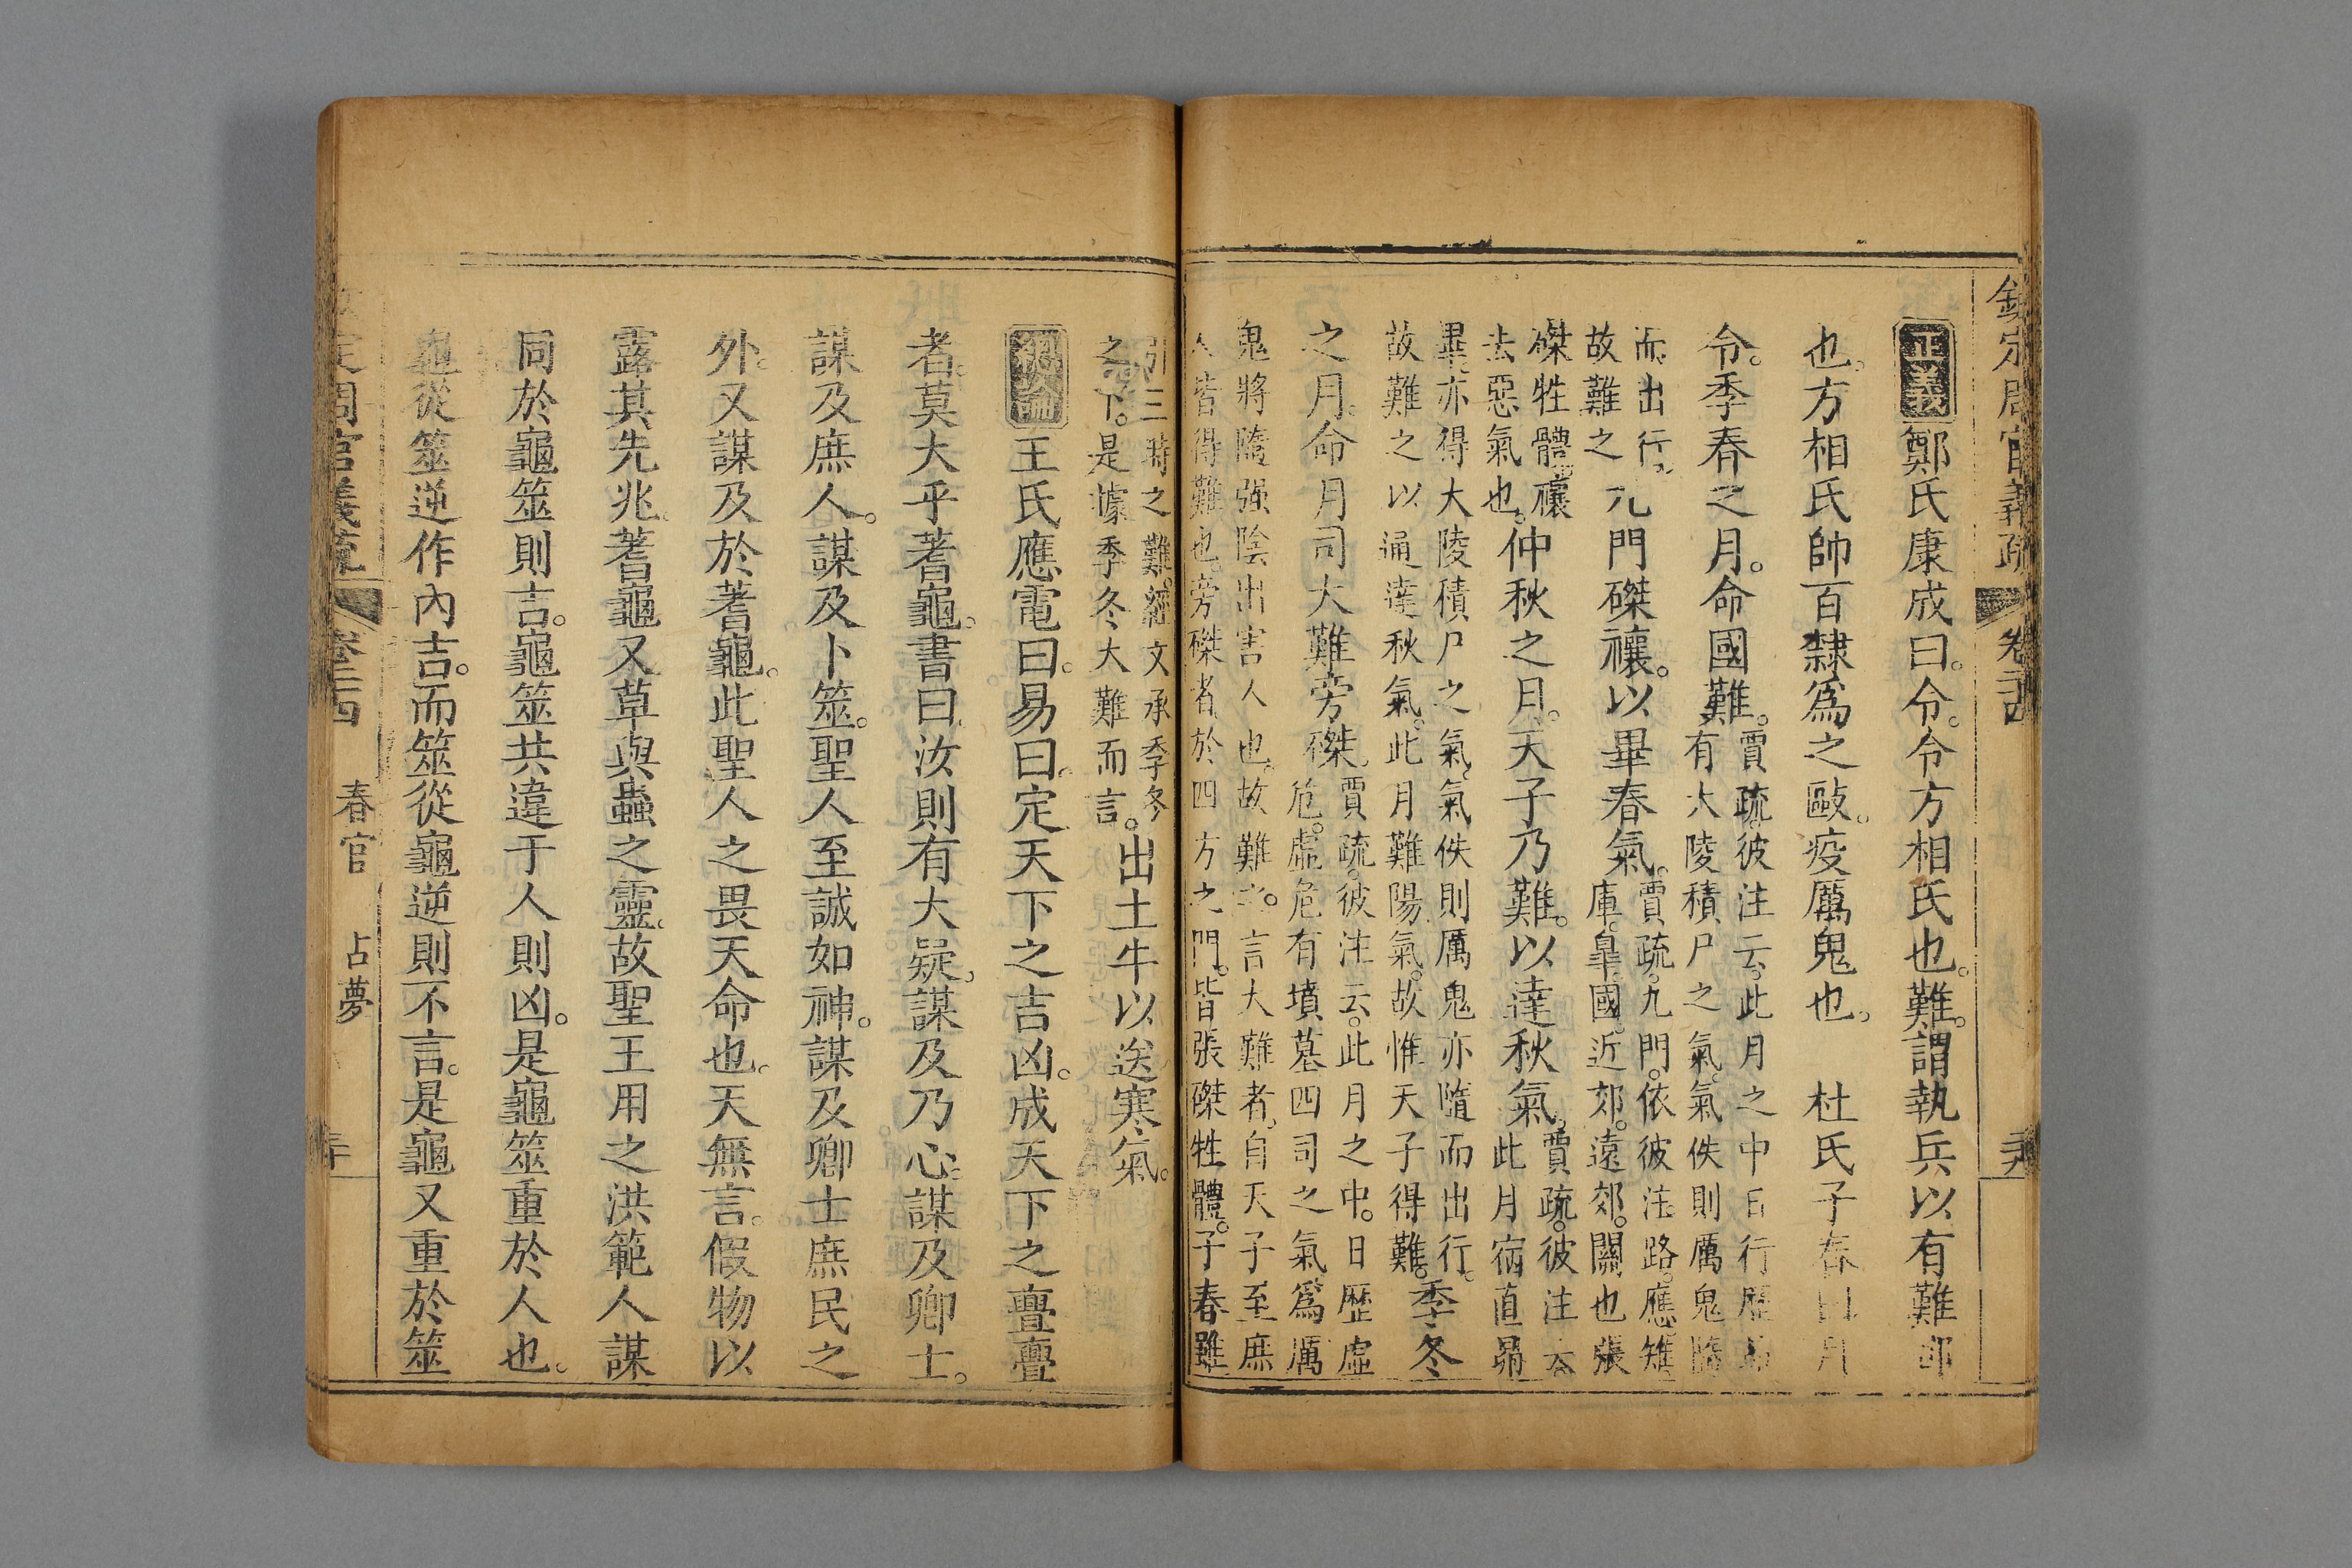 欽定周官義疏 卷二十四
正義 鄭氏康成曰。令。令方相氏也。難。謂執兵以有難郤
也。方相氏帥百隸爲之毆。疫厲鬼也。 杜氏子春曰月
令。季春之月。命國難。賈疏。彼注云。此月之中日行歷昴
有大陵積尸之氣。氣佚則厲鬼隨
而出行。
故難之
九門磔禳。以畢春氣。賈疏。九門。依彼注。路。應。雉
庫。臯。國。近郊。遠郊。關也。張
磔牲體。禳
去惡氣也。
仲秋之月。天子乃難。以達秋氣。賈疏。彼注云
此月宿直昴
畢。亦得大陵積尸之氣。氣佚則厲鬼亦隨而出行。
故難之以通達秋氣。此月難陽氣。故惟天子得難。
季冬
之月。命月司大難旁磔。賈疏。彼注云。此月之中。日歷虛
危。虛危有墳墓四司之氣爲厲
鬼將隨强陰出害人也。故難之。言大難者。自天子至庶
人皆得難也。旁磔者。於四方之門。皆張磔牲體。子春雖
引三時之難。經文承季冬
之下。是據季冬大難而言。
出土牛以送寒氣。
總論 王氏應電曰。易曰。定天下之吉凶。成天下之亹亹
者。莫大乎蓍龜。書曰。汝則有大疑。謀及乃心。謀及卿士。
謀及庶人。謀及卜筮。聖人至誠如神。謀及卿士庶民之
外。又謀及於蓍龜。此聖人之畏天命也。天無言。假物以
露其先兆。蓍龜又草與蟲之靈。故聖王用之。洪範人謀
同於龜筮則吉。龜筮共違于人則凶。是龜筮重於人也。
龜從筮逆作內吉。而筮從龜逆則不言。是龜又重於筮
周官義疏 卷二十四 春官 占夢